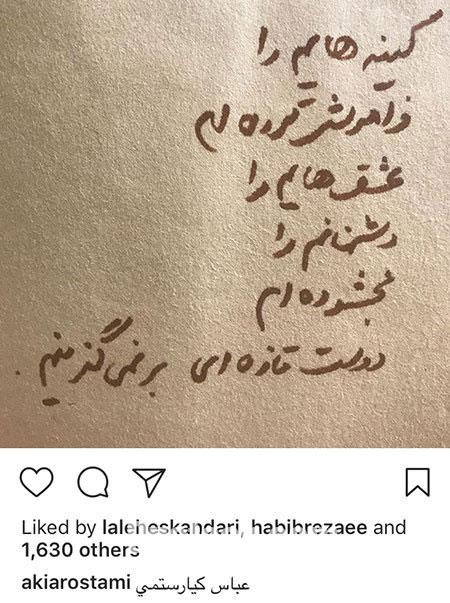 کینه هایم را
فراموش کرده ام
عشق هایم را
دشمنانم را
بخشوده ام
دوست تازه ای بر نمی گزینم .
Liked by laleheskandari, habibrezaee and
1,630 others
akiarostami عباس كيارستمي